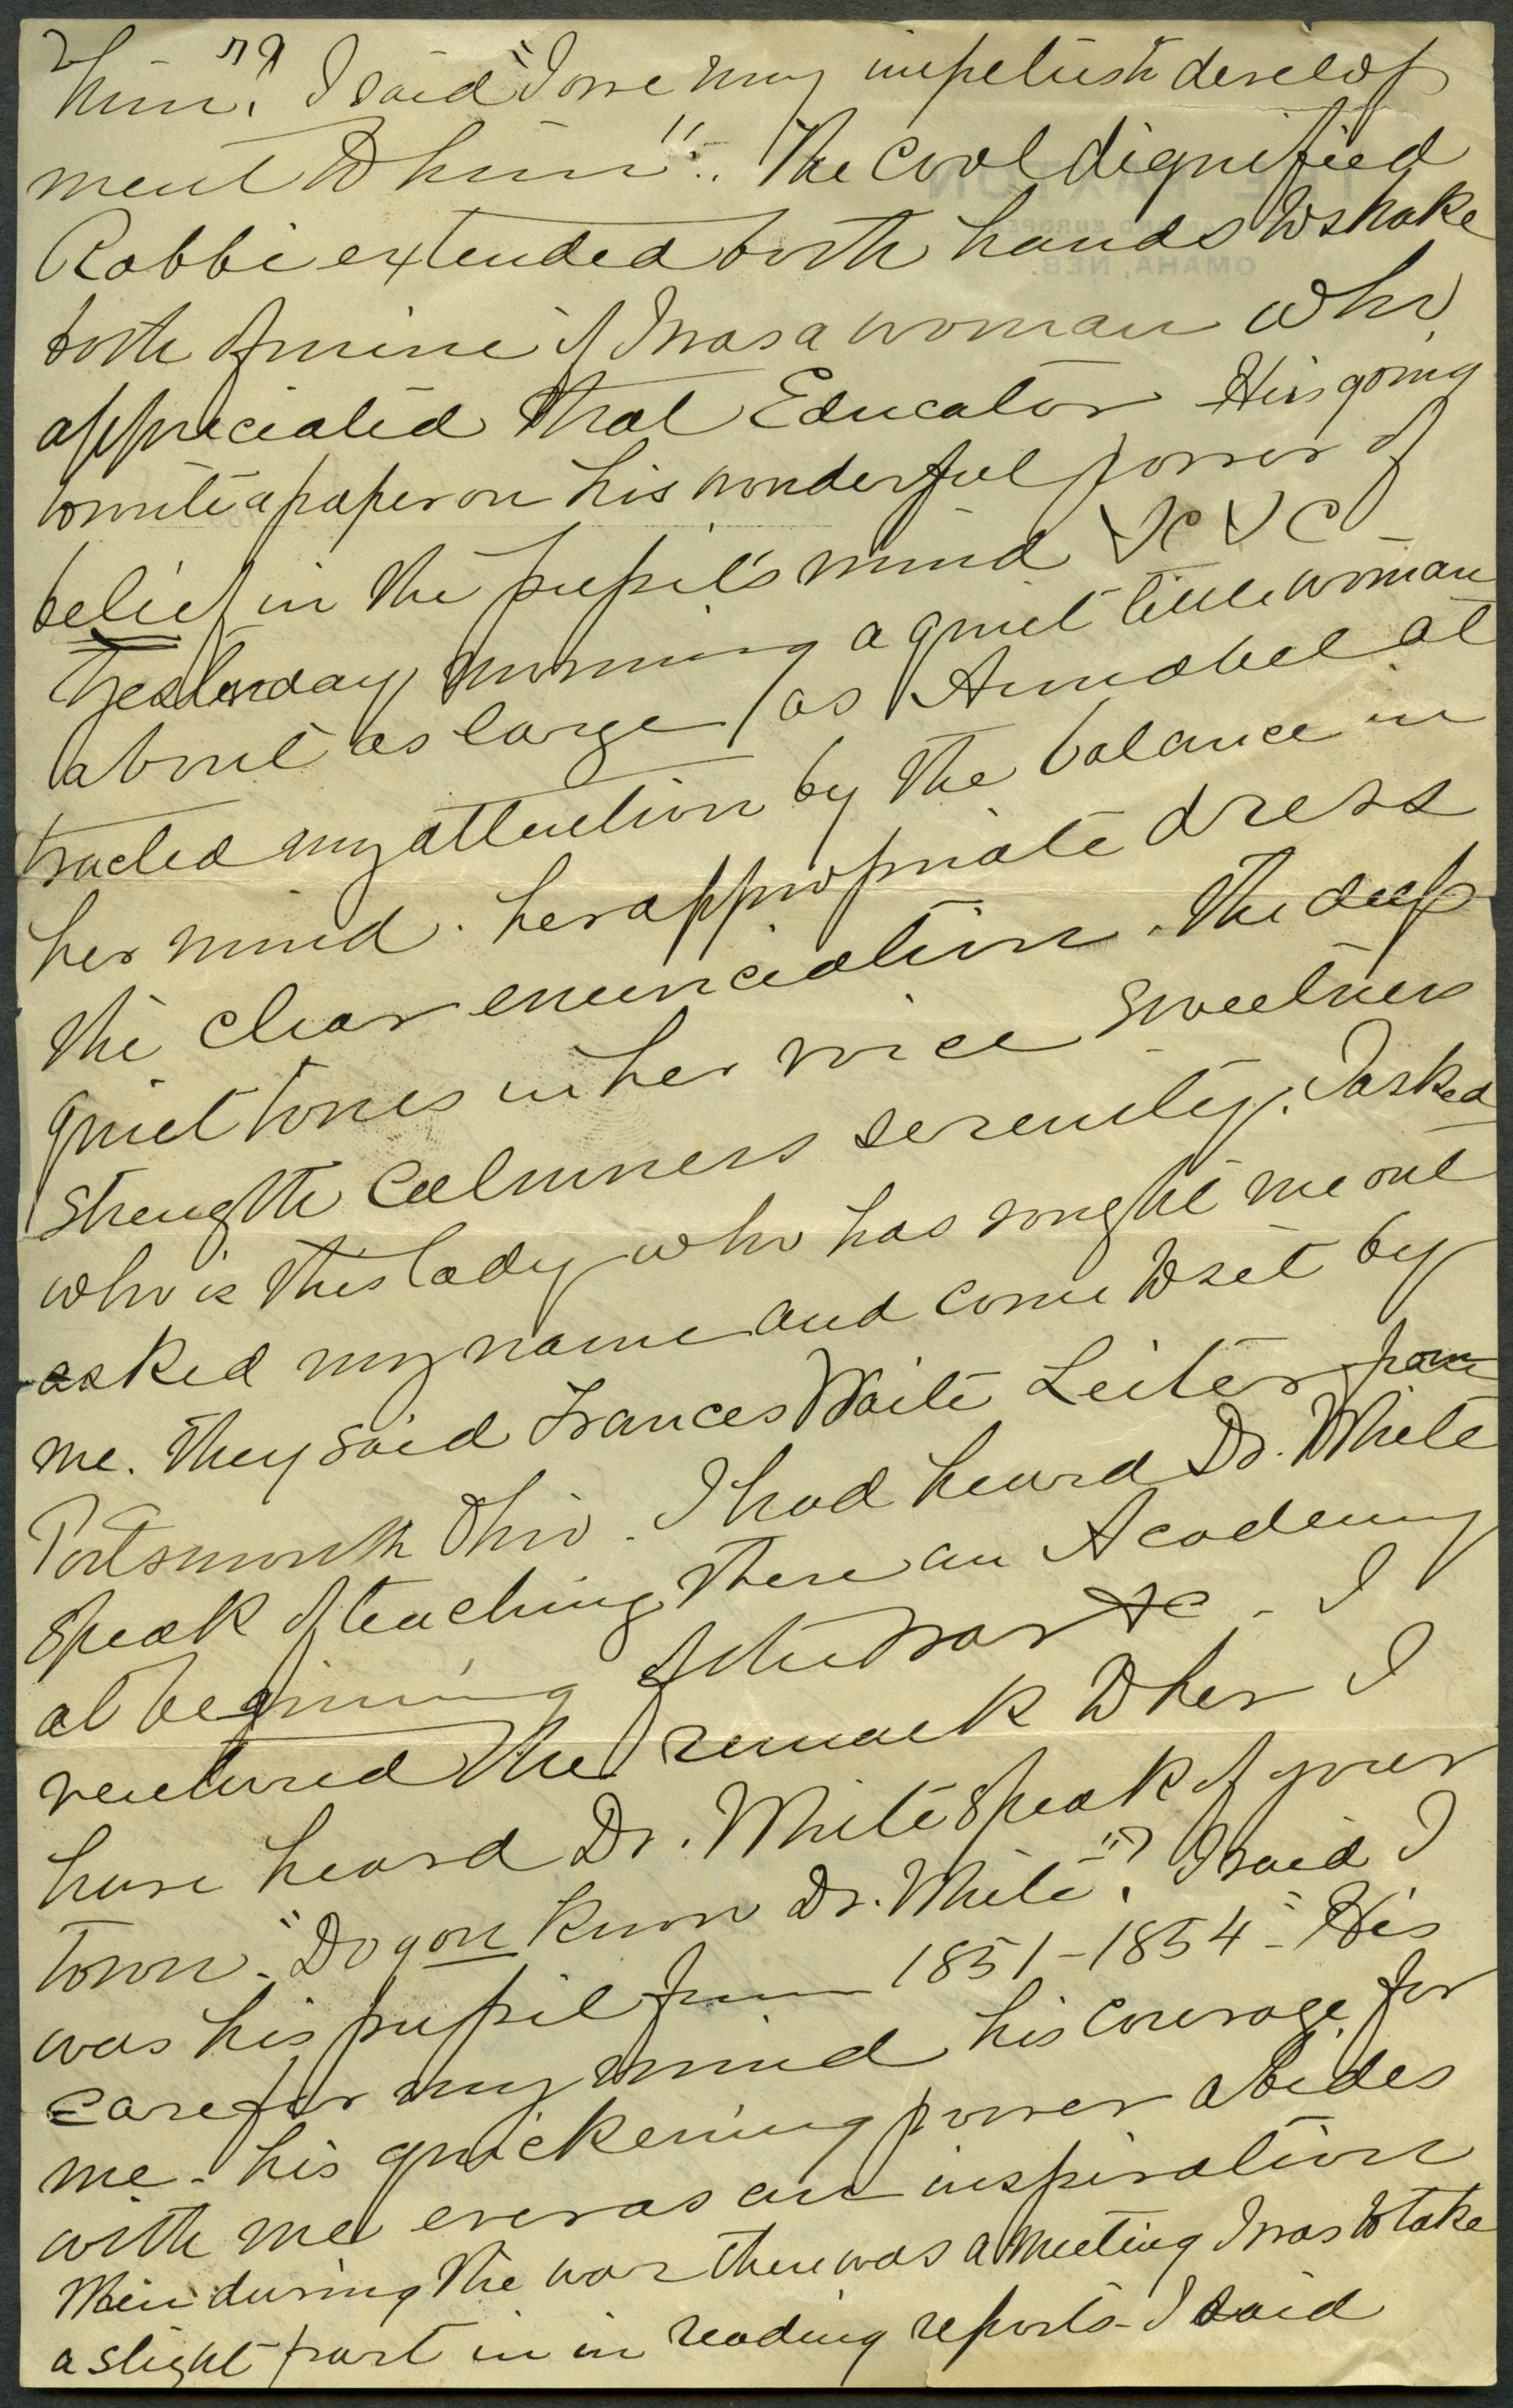 him."? I said "I owe my impetus to develop
ment to him". The cool dignified
Rabbi extended both hands to shake
both of mine if I was a woman who
appreciated that Educator He is going
to write a paper on his wonderful power of
belief in the pupil's mind &c &c
Yesterday morning a quiet little woman
about as large as Annabel at
tracted my attention by the balance in
her mind. her appropriate dress
the clear enunciation. The deep
quiet tones in her voice sweetness
strength calmness serenity. I asked
who is this lady who has sought me out
asked my name and come to sit by
me. They said Frances Waite Leiter from
Portsmouth Ohio. I had heard Dr. White
speak of teaching there an Academy
at begining of the war &c - I
ventured the remark to her I
have heard Dr. White speak of your
town. "Do you know Dr. White"? I said I
was his pupil from 1851-1854 - His
care for my mind his courage for
me - his quickening power abides
with me ever as an inspiration
Then during the war there was a meeting I was to take
a slight part in in reading reports - I said
THE PAXTON
AND EUROPEAN
OMAHA, NEB.